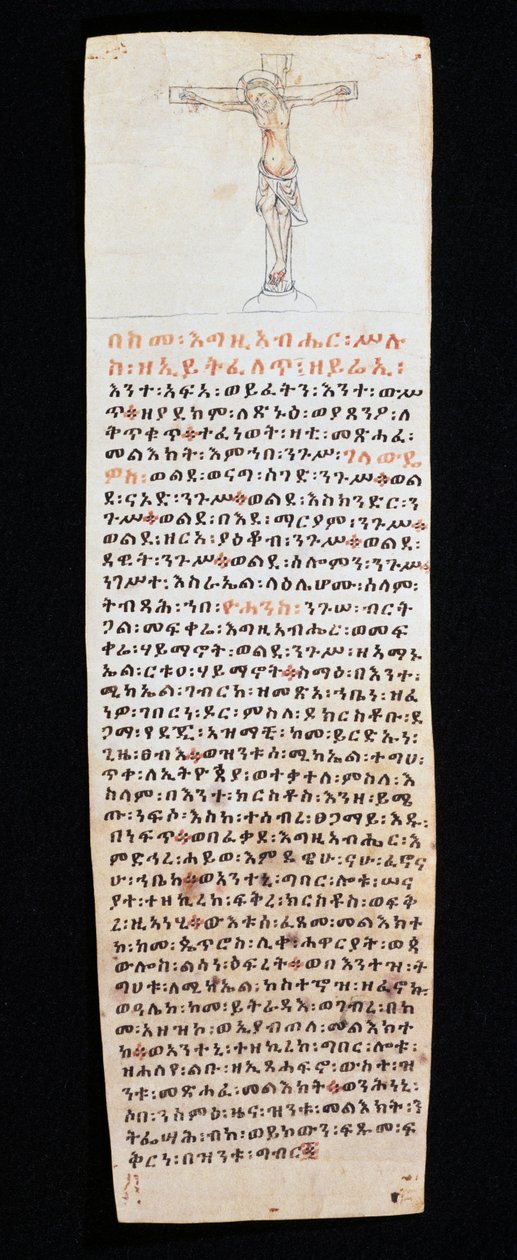 በከመ፡እግዚኣብሔር፡ሥሉ
ስ፡ዘኢይትፈለጥ፤ዘይሬኢ፡
እንተ፡አፍኣ፡ወይፈትን፡እንተ፡ውሥ
ጥ፨ዘያደክም፡ለጽኑዕ፡ወያጸንዖ፡ለ
ቅጥቁጥ፨ተፈነወት፡ዛቲ፡መጽሐፈ፡
መልእክት፡እምኀበ፡ንጉሥ፡ገላውዴ
ዎስ፡ወልደ፡ወናግ፡ሰገድ፡ንጉሥ፨ወል
ደ፡ናኦድ፡ንጉሥ፨ወልደ፡እስክንድር፡ን
ጉሥ፨ወልደ፡በእደ፡ማርያም፡ንጉሥ፨
ወልደ፡ዘርአ፡ያዕቆብ፡ንጉሥ፨ወልደ፡
ዳዊት፡ንጉሥ፨ወልደ፡ሰሎሞን፡ንጉሥ፡
ነገሥተ፡እስራኤል፡ላዕሌሆሙ፡ሰላም፡
ትብጻሕ፡ኀበ፡ዮሐንስ፡ንጉሠ፡ብርት
ጋል፡መፍቀሬ፡እግዚኣብሔር፡ወመፍ
ቀሬ፡ሃይማኖት፡ወልደ፡ንጉሥ፡ዘኣማኑ
ኤል፡ርቱዐ፡ሃይማኖት፨ስማዕ፡በእንተ፡
ሚካኤል፡ገብርከ፡ዘመጽአ፡ኀቤነ፡ዘፈ
ነዎ፡ገበርነ፡ዶር፡ምስለ፡ዶክርስቶቡ፡ደ
ጋማ፡አዝማቺ፡ከመ፡ይርድኡነ፡
ጊዜ፡ፀብእ፨ወዝንቱሰ፡ሚካኤል፡ተግህ፡
ጥቀ፡ለኢትዮጵያ፡ወተቃተለ፡ምስለ፡እ
ስላም፡በእንተ፡ክርስቶስ፡እንዘ፡ይሜ
ጡ፡ንፍሶ፡እስከ፡ተሰብረ፡ፀጋማይ፡እዱ፡
በነፍጥ፨ወበፈቃደ፡እግዚኣብሔር፡እ
ምድኅረ፡ሐይወ፡እምደዌሁ፡ናሁ፡ፈኖና
ሁ፡ኀቤከ፨ወአንተኒ፡ግበር፡ሎቱ፡ሠና
ያተ፡ተዘኪረከ፡ፍቅረ፡ክርስቶስ፡ወፍቅ
ረ፡ዚኣነሂ፨ውእቱሰ፡ፈጸመ፡መልእክተ
ከ፡ከመ፡ጴጥሮስ፡ሊቀ፡ሐዋርያት፡ወጳ
ውሎስ፡ልሳነ፡ዕፍረት፨ወበእንተዝ፡ት
ግህቱ፡ለሚካኤል፡ዘፈኖከ፡
ወዐሌከ፡ከመ፡ይትራዳእ፡ወገብረ፡በከ
መ፡አዘዝኮ፡ወኢያብጠለ፡መልእክተ
ከ፨ወአንተኒ፡ተዘኪረከ፡ግበር፡ሎቱ፡
ዝሐለየ፡ልቡ፡ዘኢጸሐፍኖ፡ውስተ፡ዝ
ንቱ፡መጽሐፈ፡መልእክት፨ወንሕነኒ፡
ሶበ፡ንሰምዕ፡ዜና፡ዝንቱ፡መልእክት፡ን
ትፌሣሕ፡ብከ፡ወይከውን፡ፍጹመ፡ፍ
ቅርነ፡በዝንቱ፡ግብር፨